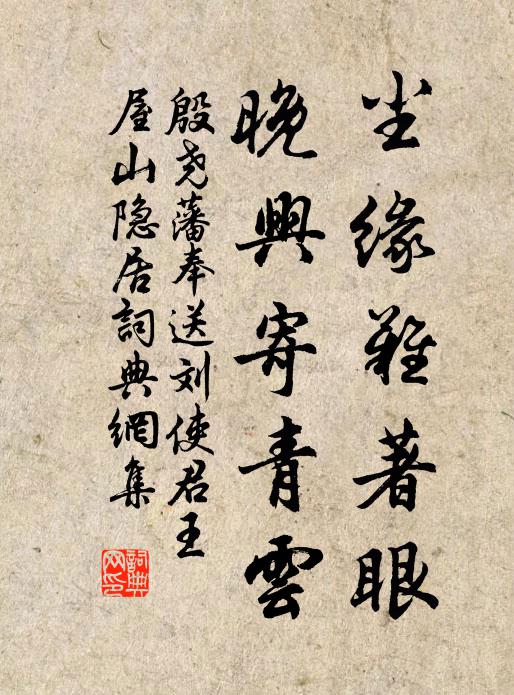 尘缘难著眼
晚興寄青雲
殷尧藩奉送刘使君王
屋山隐居詞典網集
詞典
网印